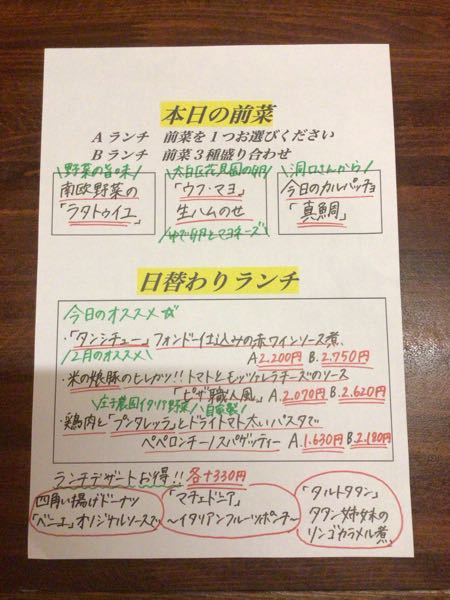 本日の前菜
A ランチ 前菜を1つお選びください
B ランチ 前菜3種盛り合わせ
\野菜の旨味/
南欧野菜の
「ラタトゥイユ」
\太白区花見園の卵/
「ウフ・マヨ」
生ハムのせ
ゆで卵とマヨネーズ
\洞口さんから/
今日のカルパッチョ
「真鯛」
日替わりランチ
今日のオススメ☆
・「タンシチュー」フォンドー仕込みの赤ワインソース煮
A 2,200円 B. 2,750円
\2月のオススメ\
・米の娘豚のヒレカツ!!トマトとモッツァレラチーズのソース
「ピザ職人風」 A. 2,070円 B. 2,620円
\庄子農園イタリア野菜/ \自家製/
・鶏肉と「プンタレッラ」とドライトマト太いパスタで
ペペロンチーノスパゲッティー A. 1,630円 B. 2,180円
ランチデザートお得!! 各+330円
四角い揚げドーナツ
「ベニエ」オリジナルソースで
「マチェドニア」
~イタリアンフルーツポンチ~
「タルトタタン」
タタン姉妹の
リンゴカラメル煮